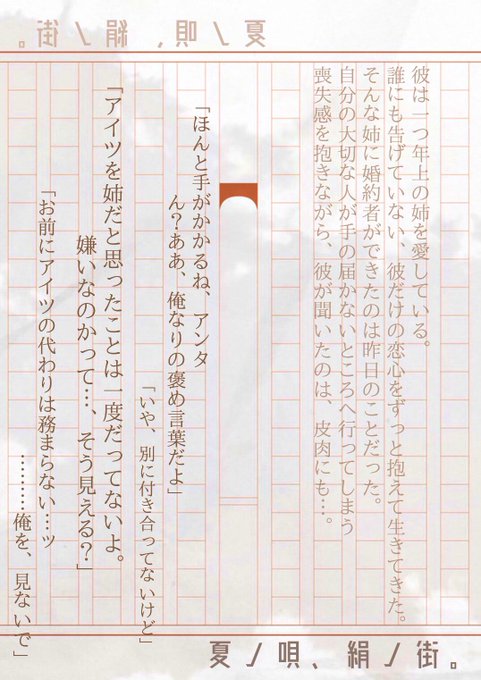 夏ノ唄、絹ノ街。
彼は一つ年上の姉を愛している。
誰にも告げていない、彼だけの恋心をずっと抱えて生きてきた。
そんな姉に婚約者ができたのは昨日のことだった。
自分の大切な人が手の届かないところへ行ってしまう
喪失感を抱きながら、彼が聞いたのは、皮肉にも…。
「ほんと手がかかるね、アンタ
ん？ああ、俺なりの褒め言葉だよ」
「いや、別に付き合ってないけど」
「アイツを姉だと思ったことは一度だってないよ。
嫌いなのかって…、そう見える？」
「お前にアイツの代わりは務まらない…ッ
………俺を、見ないで」
夏ノ唄、絹ノ街。